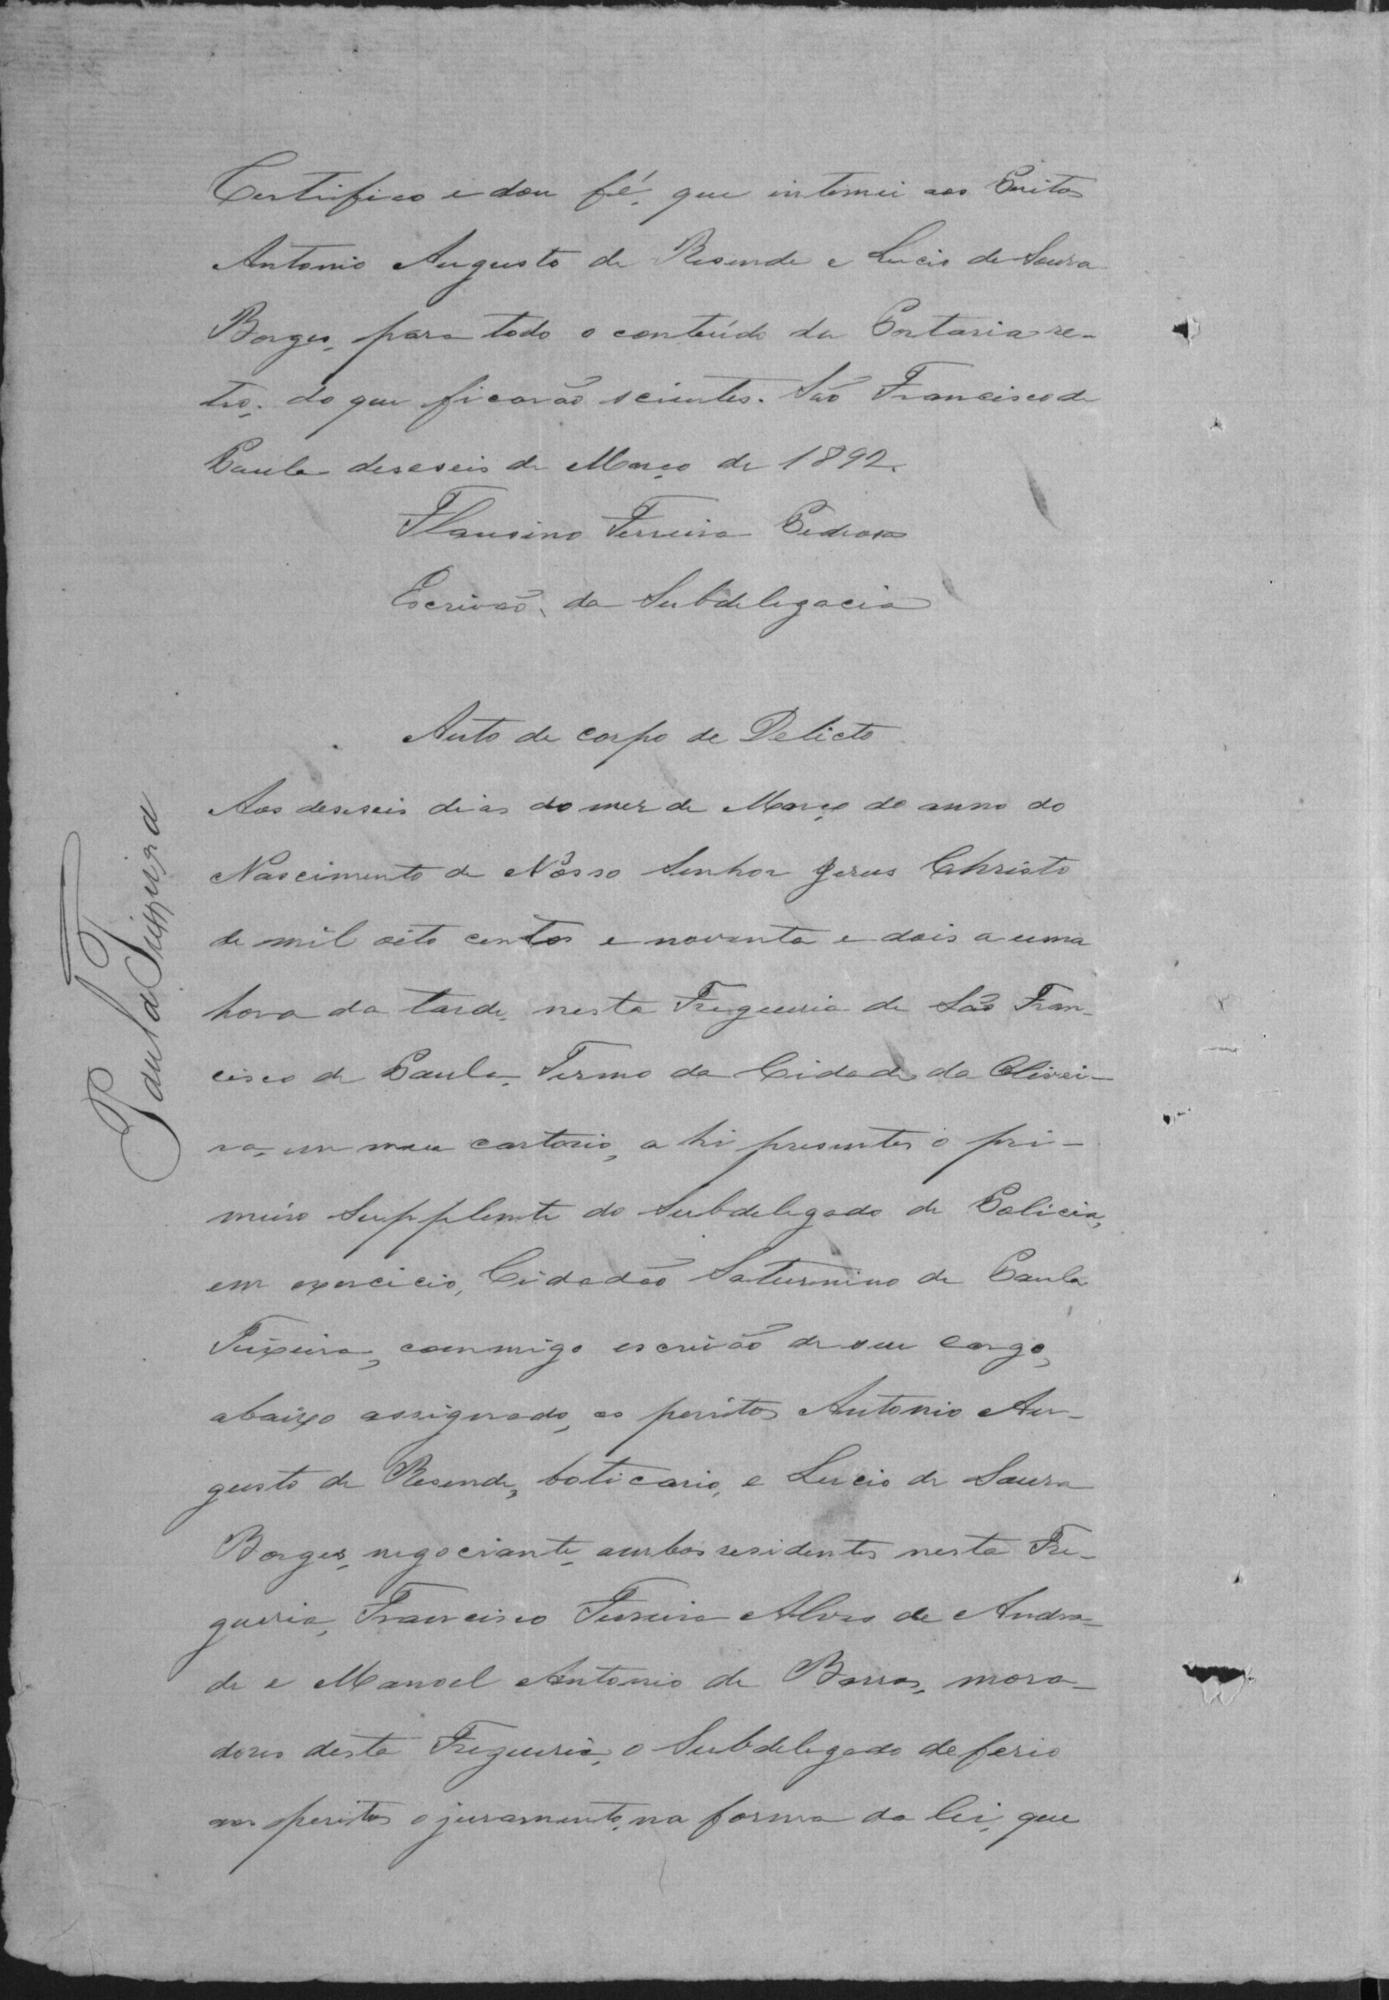 Certifico e dou fé, que intemei aos Peritos
Antonio Augusto de Resende e Lucio de Souza
Borges, para todo o conteúdo da Portaria re-
tro, do que ficarão scientes. São Francisco de
Paula deseseis de Março de 1892.
Flausino Ferreira Pedroso
Escrivão, da Subdelegacia
Auto de corpo de Delicto
Aos deseseis dias do mez de Março do anno do
Nascimento de Nosso Senhor Jesus Christo
de mil oito centos e noventa e dois a uma
hora da tarde, nesta Freguesia de São Fran-
cisco de Paula, Termo da Cidade da Olivei-
ra, em meu cartorio, a hi presentes o pri-
meiro Supplente do Subdelegado de Policia,
em exercicio, Cidadão Saturnino de Paula
Teixeira, commigo escrivão de seu cargo,
abaixo assignado, os peritos Antonio Au-
gusto de Resende, boticario, e Lucio de Souza
Borges, negociante, ambos residentes nesta Fre-
guesia, Francisco Ferreira Alves de Andra-
de e Manoel Antonio de Barros, mora-
dores desta Freguesia, o Subdelegado deferio
aos peritos o juramento, na forma da lei, que
Paula Teixeira